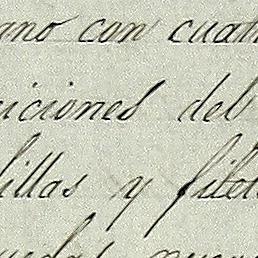 ano con cuat
iciones del
illas y filet